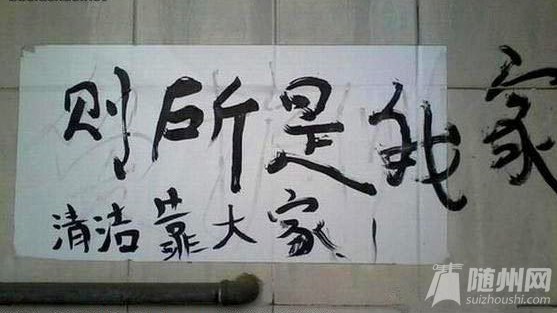 则所是我家
清洁靠大家!
随州网
suizhoushi.com